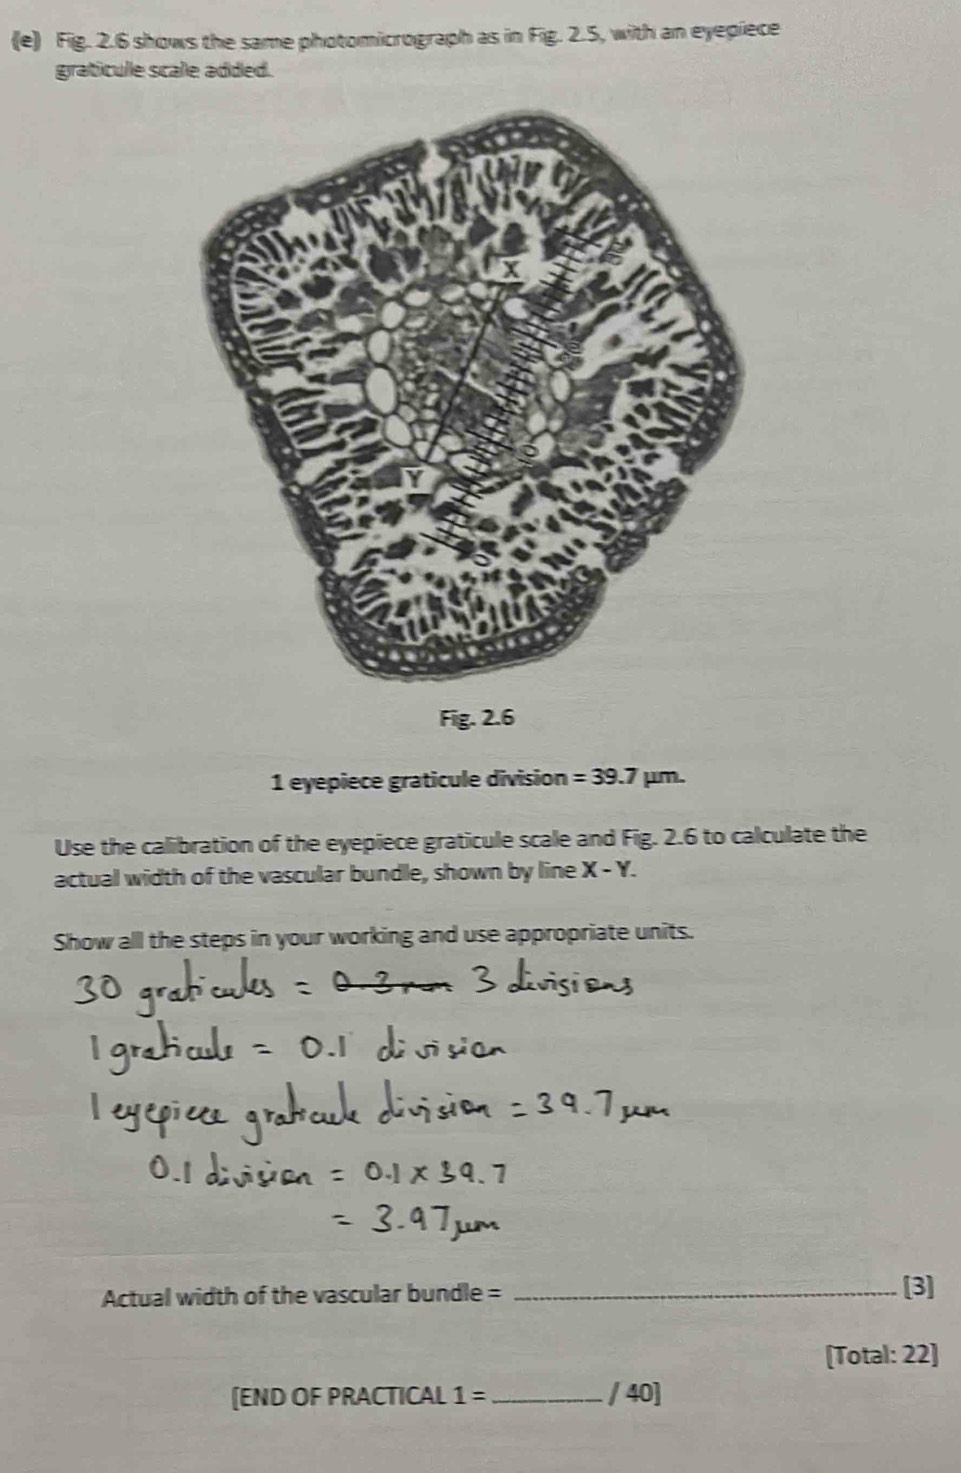 (e) Fig. 2.6 shows the same photomicrograph as in Fig. 2.5, with an eyepiece
graticule scale added.
30
X
20
10
Y
0
Fig. 2.6
1 eyepiece graticule division = 39.7 µm.
Use the calibration of the eyepiece graticule scale and Fig. 2.6 to calculate the
actual width of the vascular bundle, shown by line X - Y.
Show all the steps in your working and use appropriate units.
30 graticules = 0.3 mm 3 divisions
1 graticule = 0.1 division
1 eyepiece graticule division = 39.7 µm
0.1 division = 0.1 × 39.7
= 3.97 µm
Actual width of the vascular bundle = ____________ [3]
[Total: 22]
[END OF PRACTICAL 1 = ________ / 40]